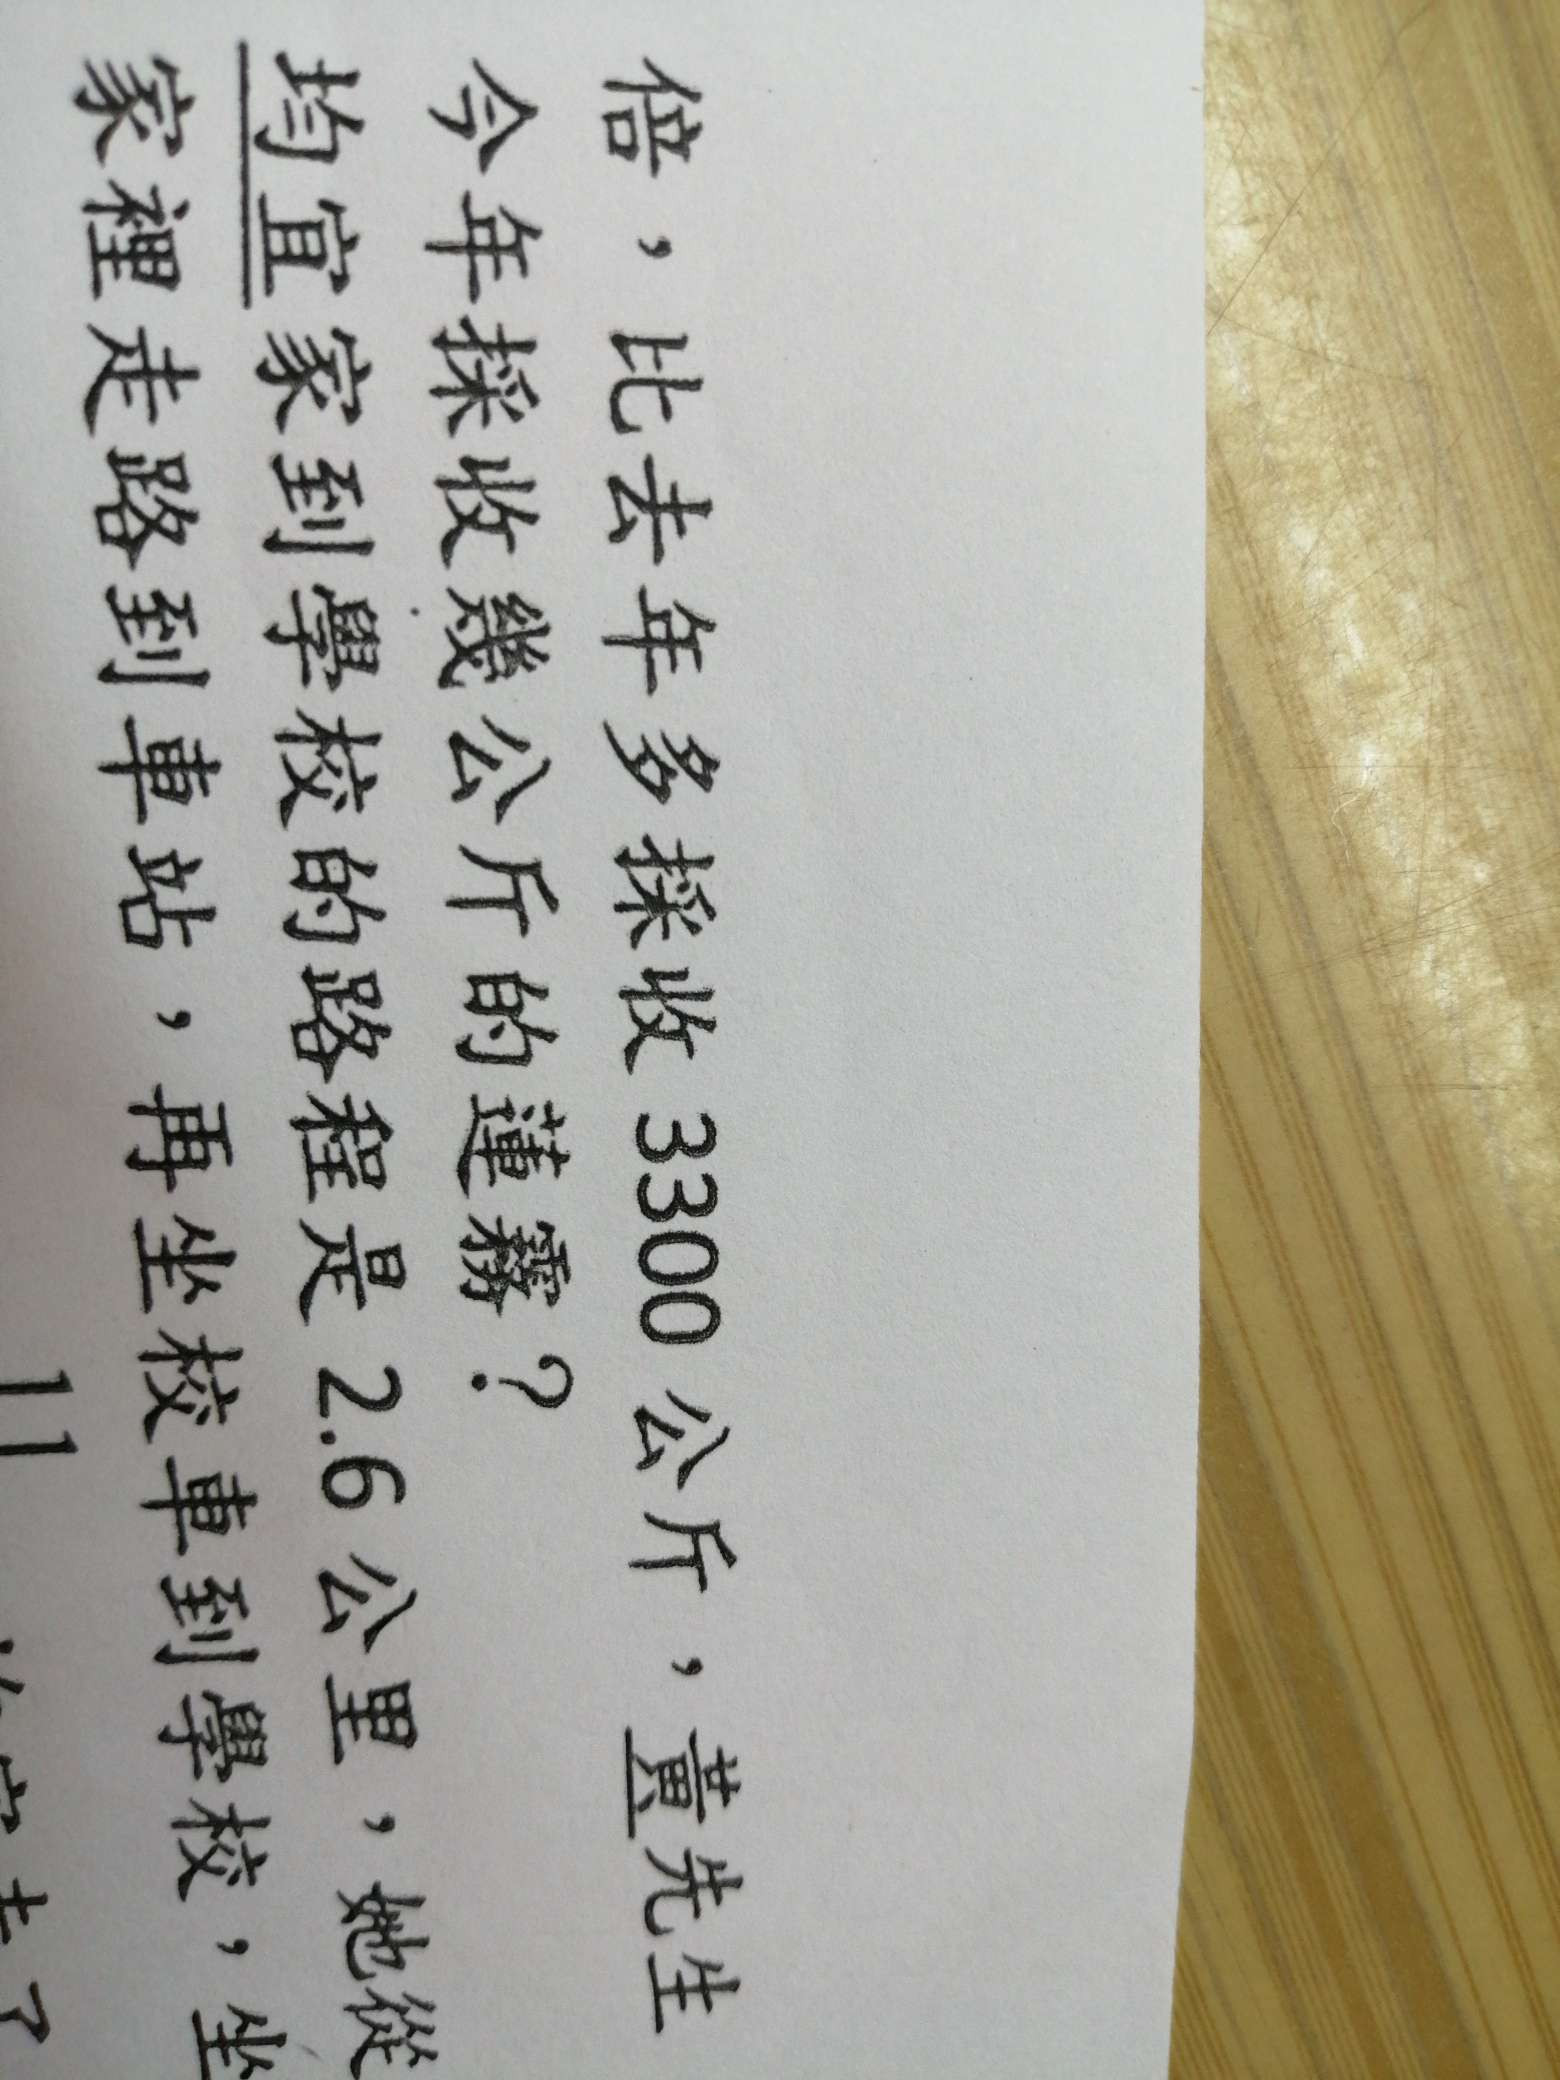 倍，比去年多採收 3300 公斤，黃先生
今年採收幾公斤的蓮霧？
均宜家到學校的路程是 2.6 公里，她從
家裡走路到車站，再坐校車到學校，坐
11